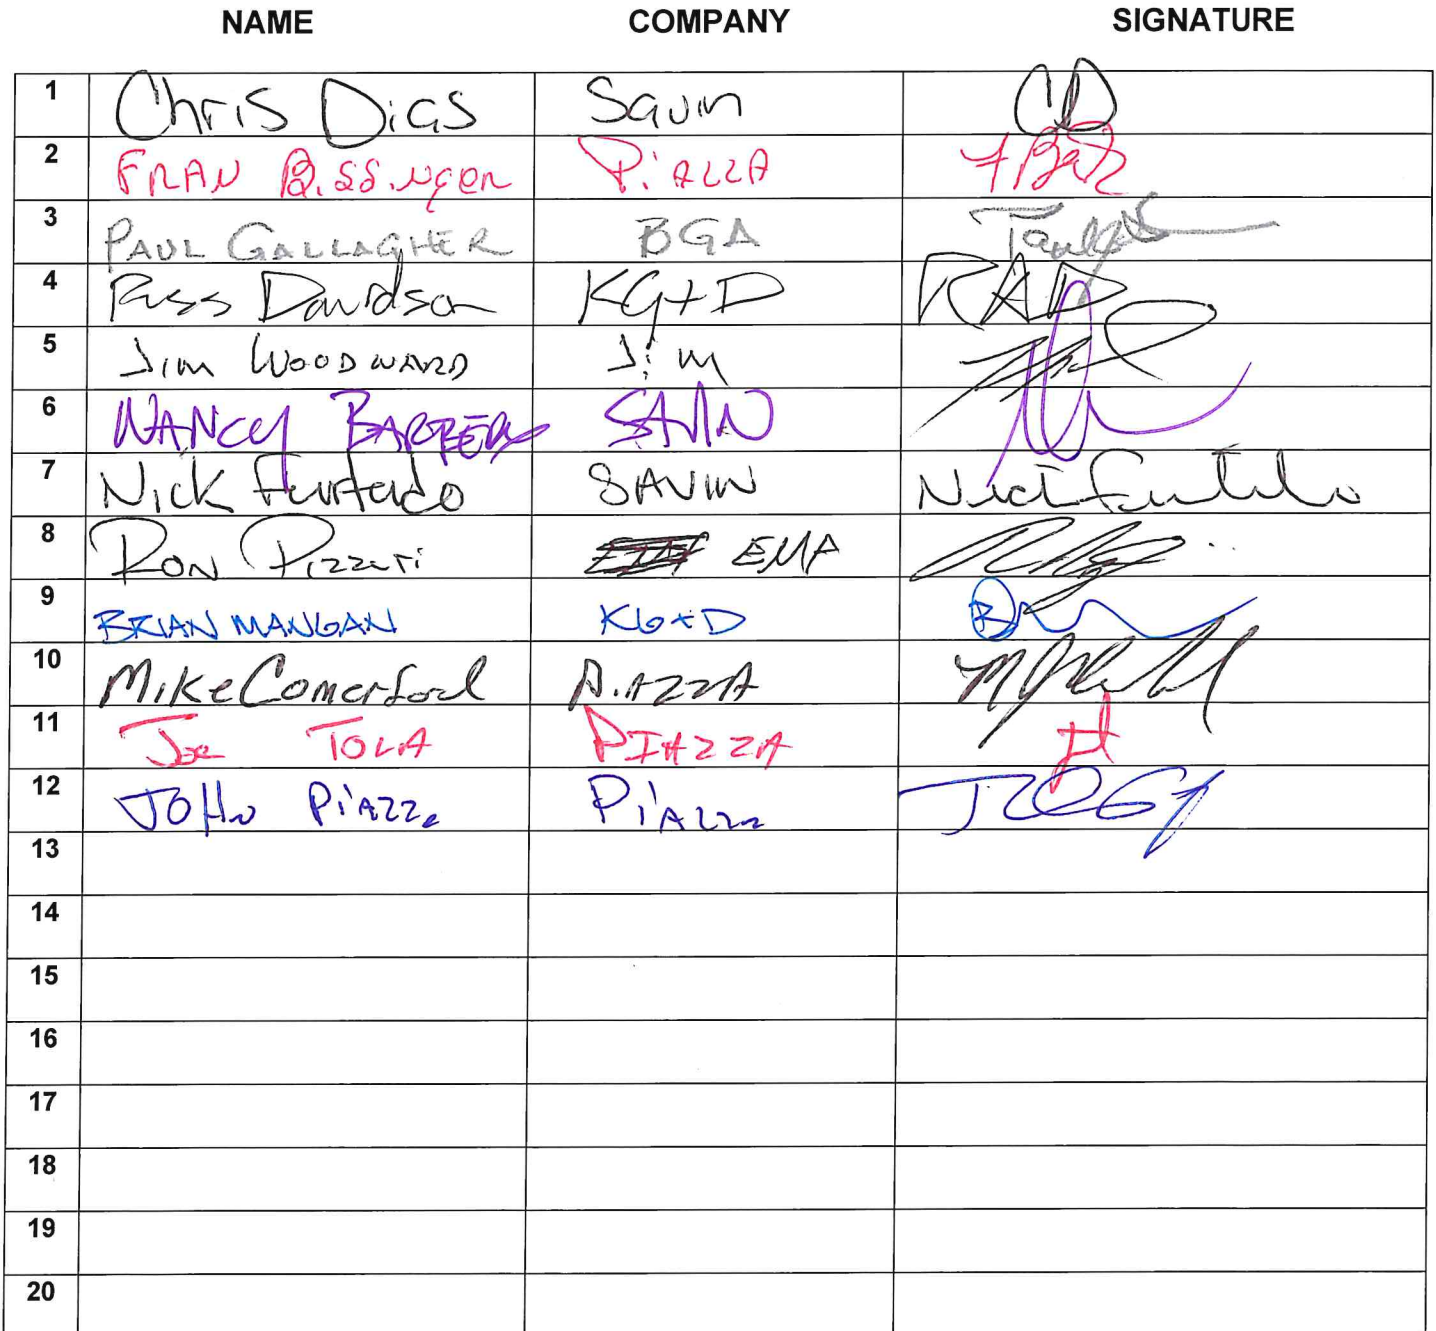 NAME COMPANY SIGNATURE
1 Chris Dias Savin CD
2 FRAN Bissinger PiAZZA
3 PAUL GALLAGHER BGA
4 Russ Davidson KG+D RAD
5 Jim WOODWARD Jim
6 NANCY BARBERO SAVIN
7 Nick Furtado SAVIN Nick Furtado
8 RON Pizzuti EMA
9 BRIAN MANGAN KG+D
10 Mike Comerford PiAZZA
11 Joe TOLA PIAZZA JT
12 JOHN PiAZZa PiAZZa
13
14
15
16
17
18
19
20